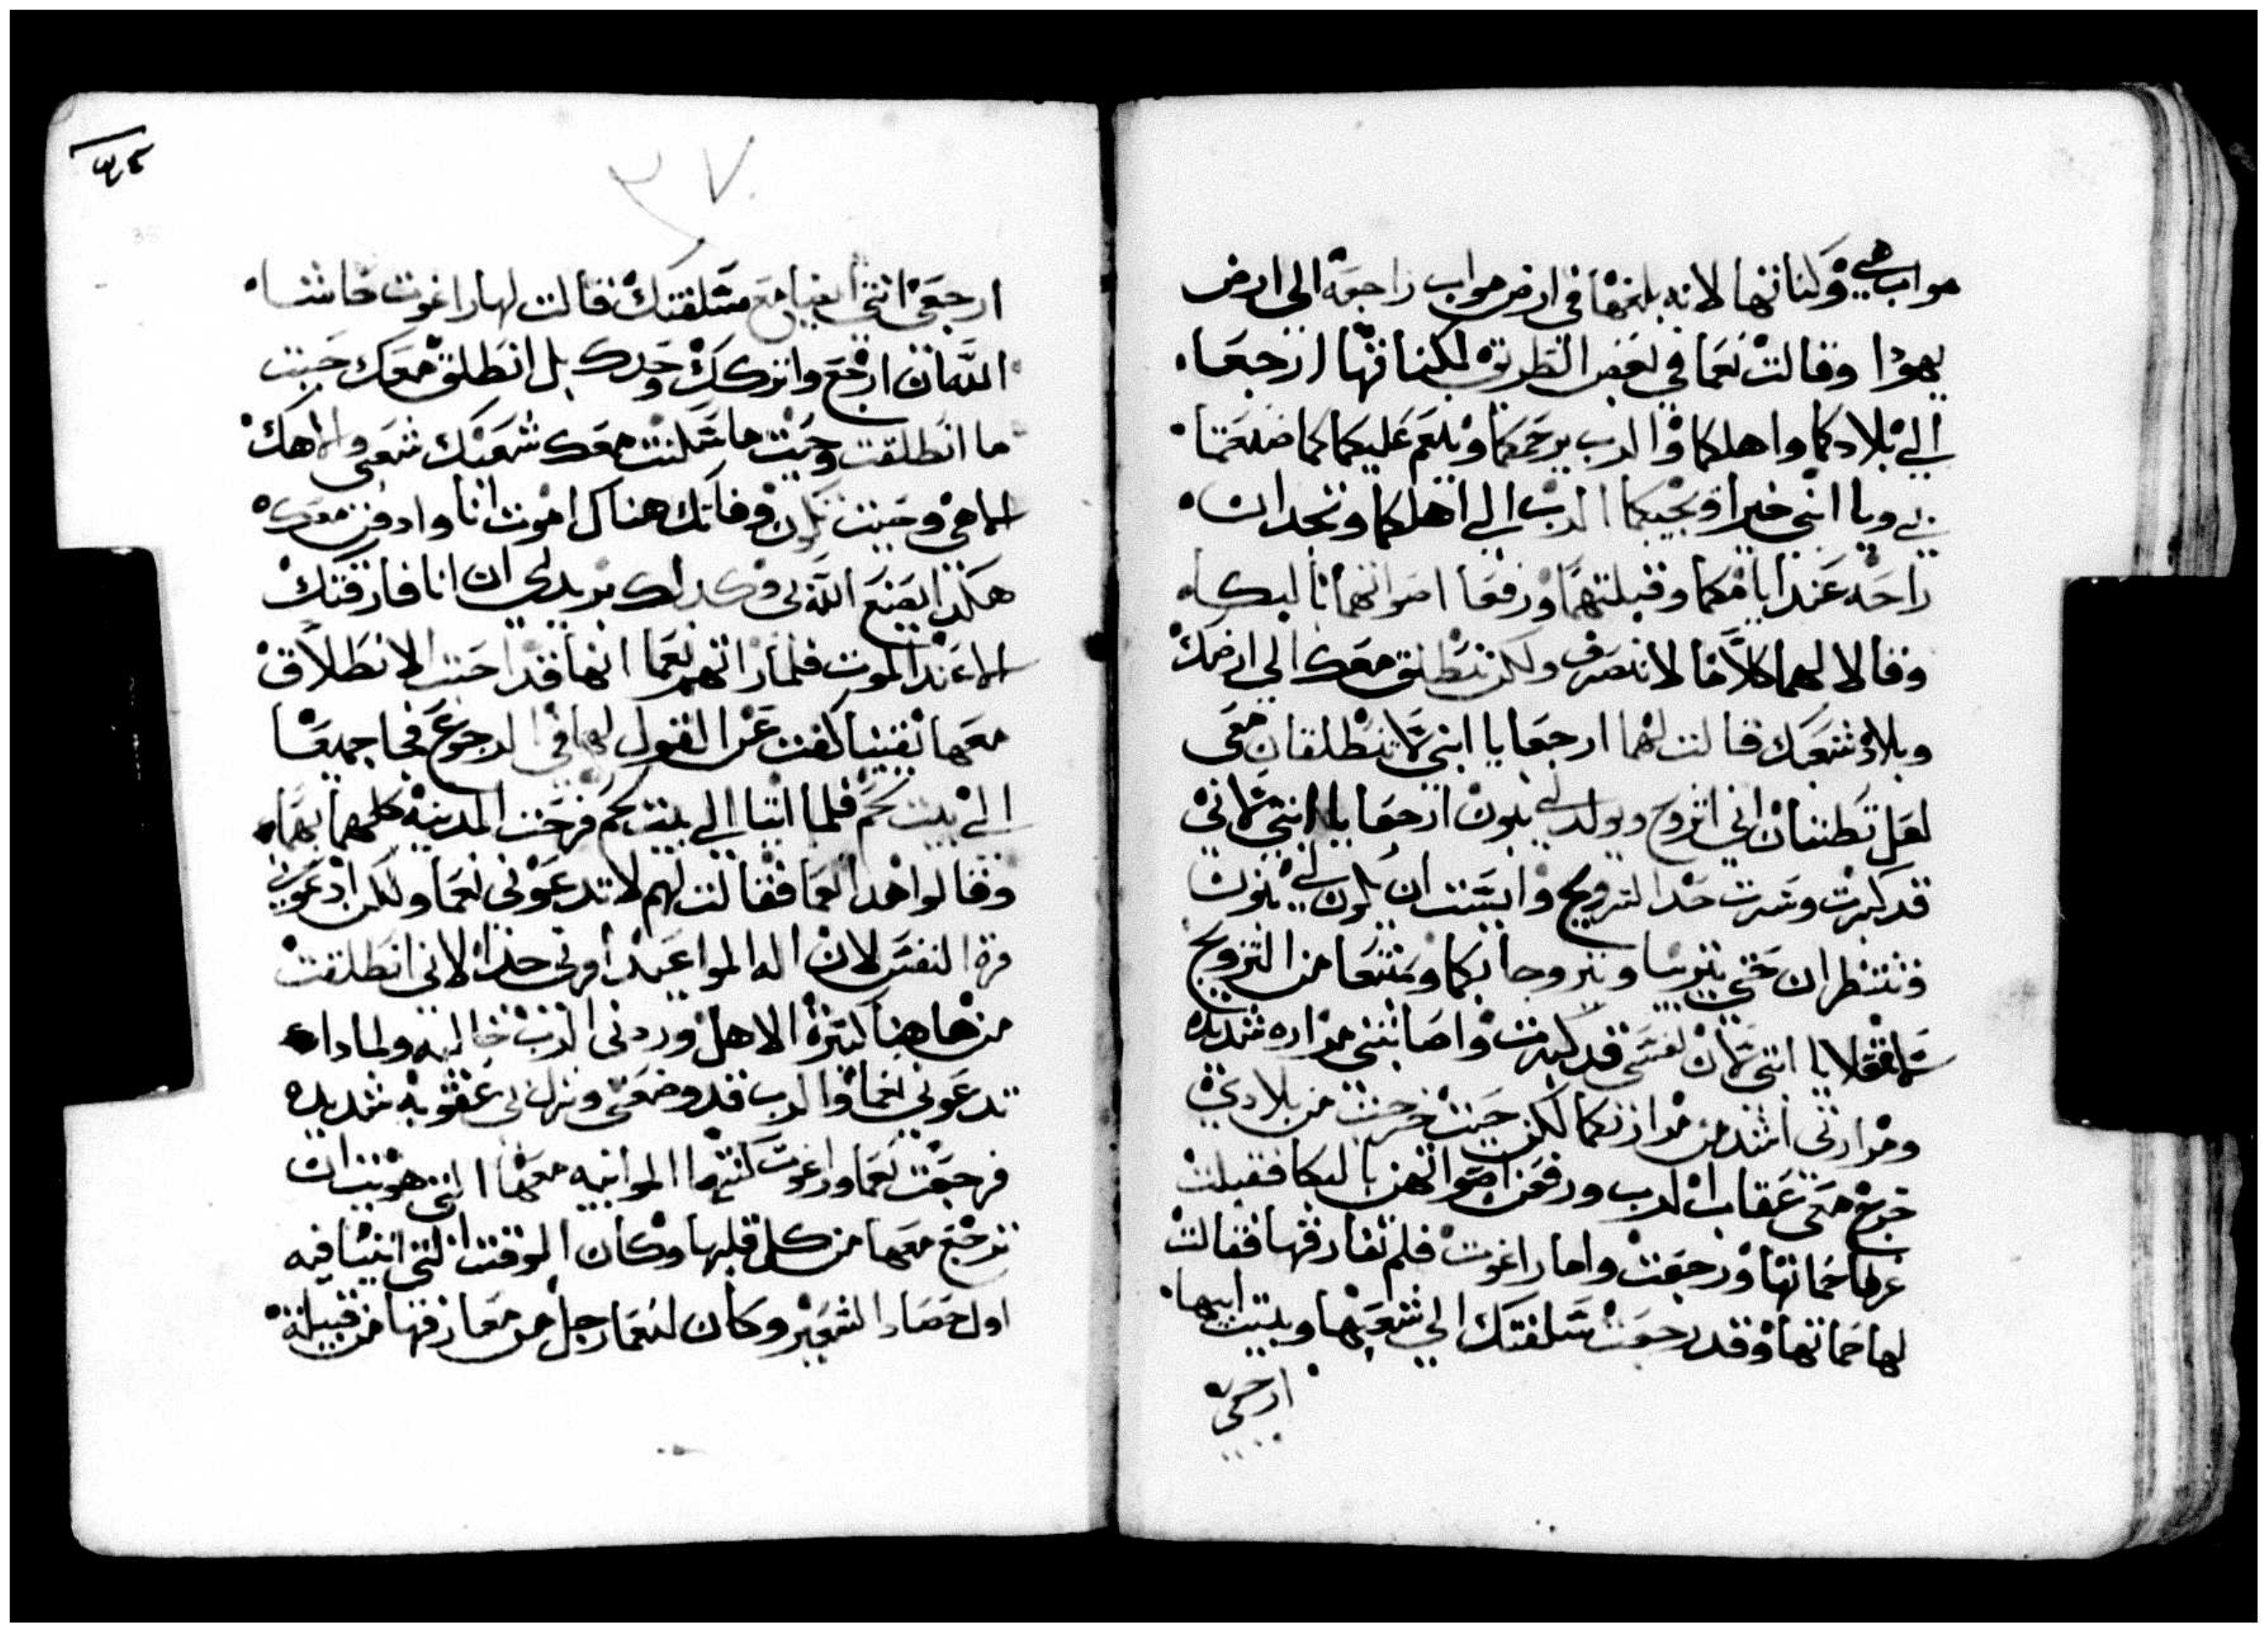 مواب هي وكناتها لانه بلغها في ارض مواب راجعه الي ارض
يهودا وقالت نعما في بعض الطريق لكناتها ارجعا
الي بلادكما واهلكما والرب يرحمكما وينعم عليكما كما صنعتما
بي ويا ابني خيرا ويجيبكما الرب الي اهلكما وتجدان
راحه عند ابايكما وقبلتهما ورفعا اصواتهما بالبكاء
وقالا لهما كلاما لا ننصرف ولكن ننطلق معك الي ارضك
وبلاد شعبك فقالت لهما ارجعا يا ابنتي لا تنطلقان معي
لعل تظننان اني اتزوج ويولد لي بنون ارجعا يا ابنتي لاني
قد كبرت وسرت حد التزويج وايست ان يكون لي بنون
فتنتظران حتي يتربيا ويتزوجا بكما وتمتنعا من التزويج
يا ابنتي لان نفسي قد كبرت واصابتني مراره شديده
ومرارتي اشد من مرارتكما لكن حيت خرجت من بلادي
خرج معي عقاب الرب ورفعن اصواتهن بالبكا فقبلت
عرفا حماتها ورجعت واما راغوت فلم تفارقها فقالت
لها حماتها وقد رجعت سلفتك الي شعبها وبيت ابيها
ارجعي
٣٧
ارجعي انتي ايضا مع سلفتك فقالت لها راغوت حاشا
الله ان ارجع واتركك وحدك بل انطلق معك حيت
ما انطلقت وحيت ما سكنت معك شعبك شعبي والاهك
الاهي وحيت تكون وفاتك هناك اموت انا وادفن معك
هكذا يصنع الله بي وكذلك يزيدني ان انا فارقتك
الا عند الموت فلما راتهم نعما انها قد احبت الانطلاق
معها تقينيا كفت عن القول لها في الرجوع فجا جميعا
الي بيت لحم فلما اتيا الي بيت لحم فرحت المدينه كلها بهما
وقالوا هذا نعما فقالت لهم لا تدعوني نعما ولكن ادعوني
مرة النفس لان اله المواعيد امرني جدا لاني انطلقت
من هاهنا كتيرة الاهل وردني الرب خاليه ولماداء
تدعوني نعما والرب قد وضعني ونزل بي عقوبه شديده
فرجعت نعما وراغوت كنتها الموابيه معها التي هويت ان
ترجع معها من كل قلبها وكان الوقت التي اتيتا فيه
اول حصاد الشعير وكان لنعما رجل من معارفها من قبيلة